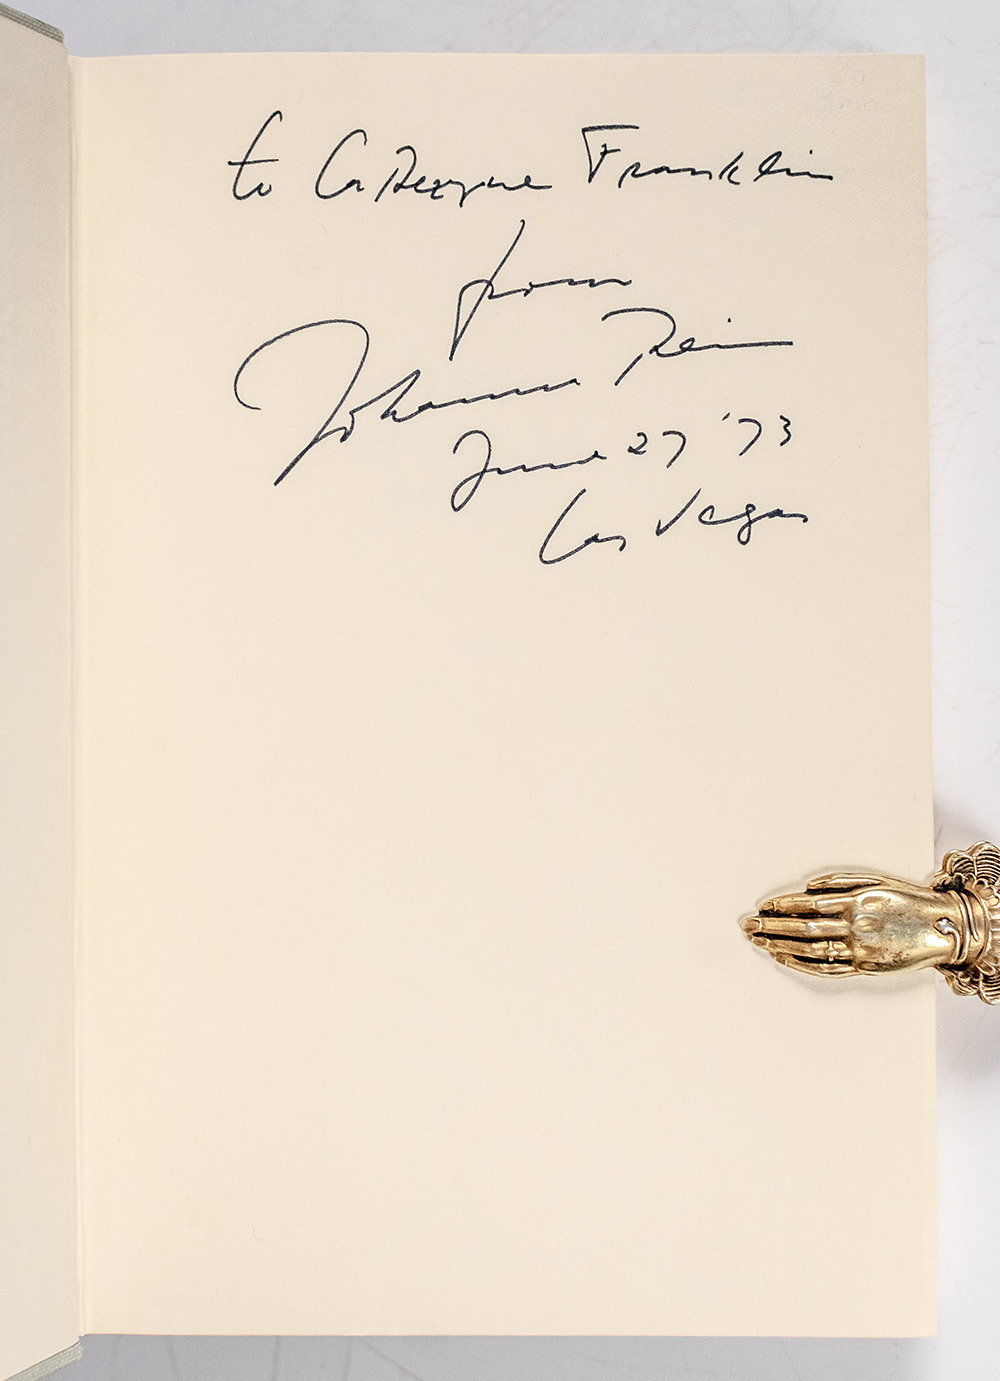 to Catheryne Franklin
from
Johanna Reiss
June 27 '73
Las Vegas